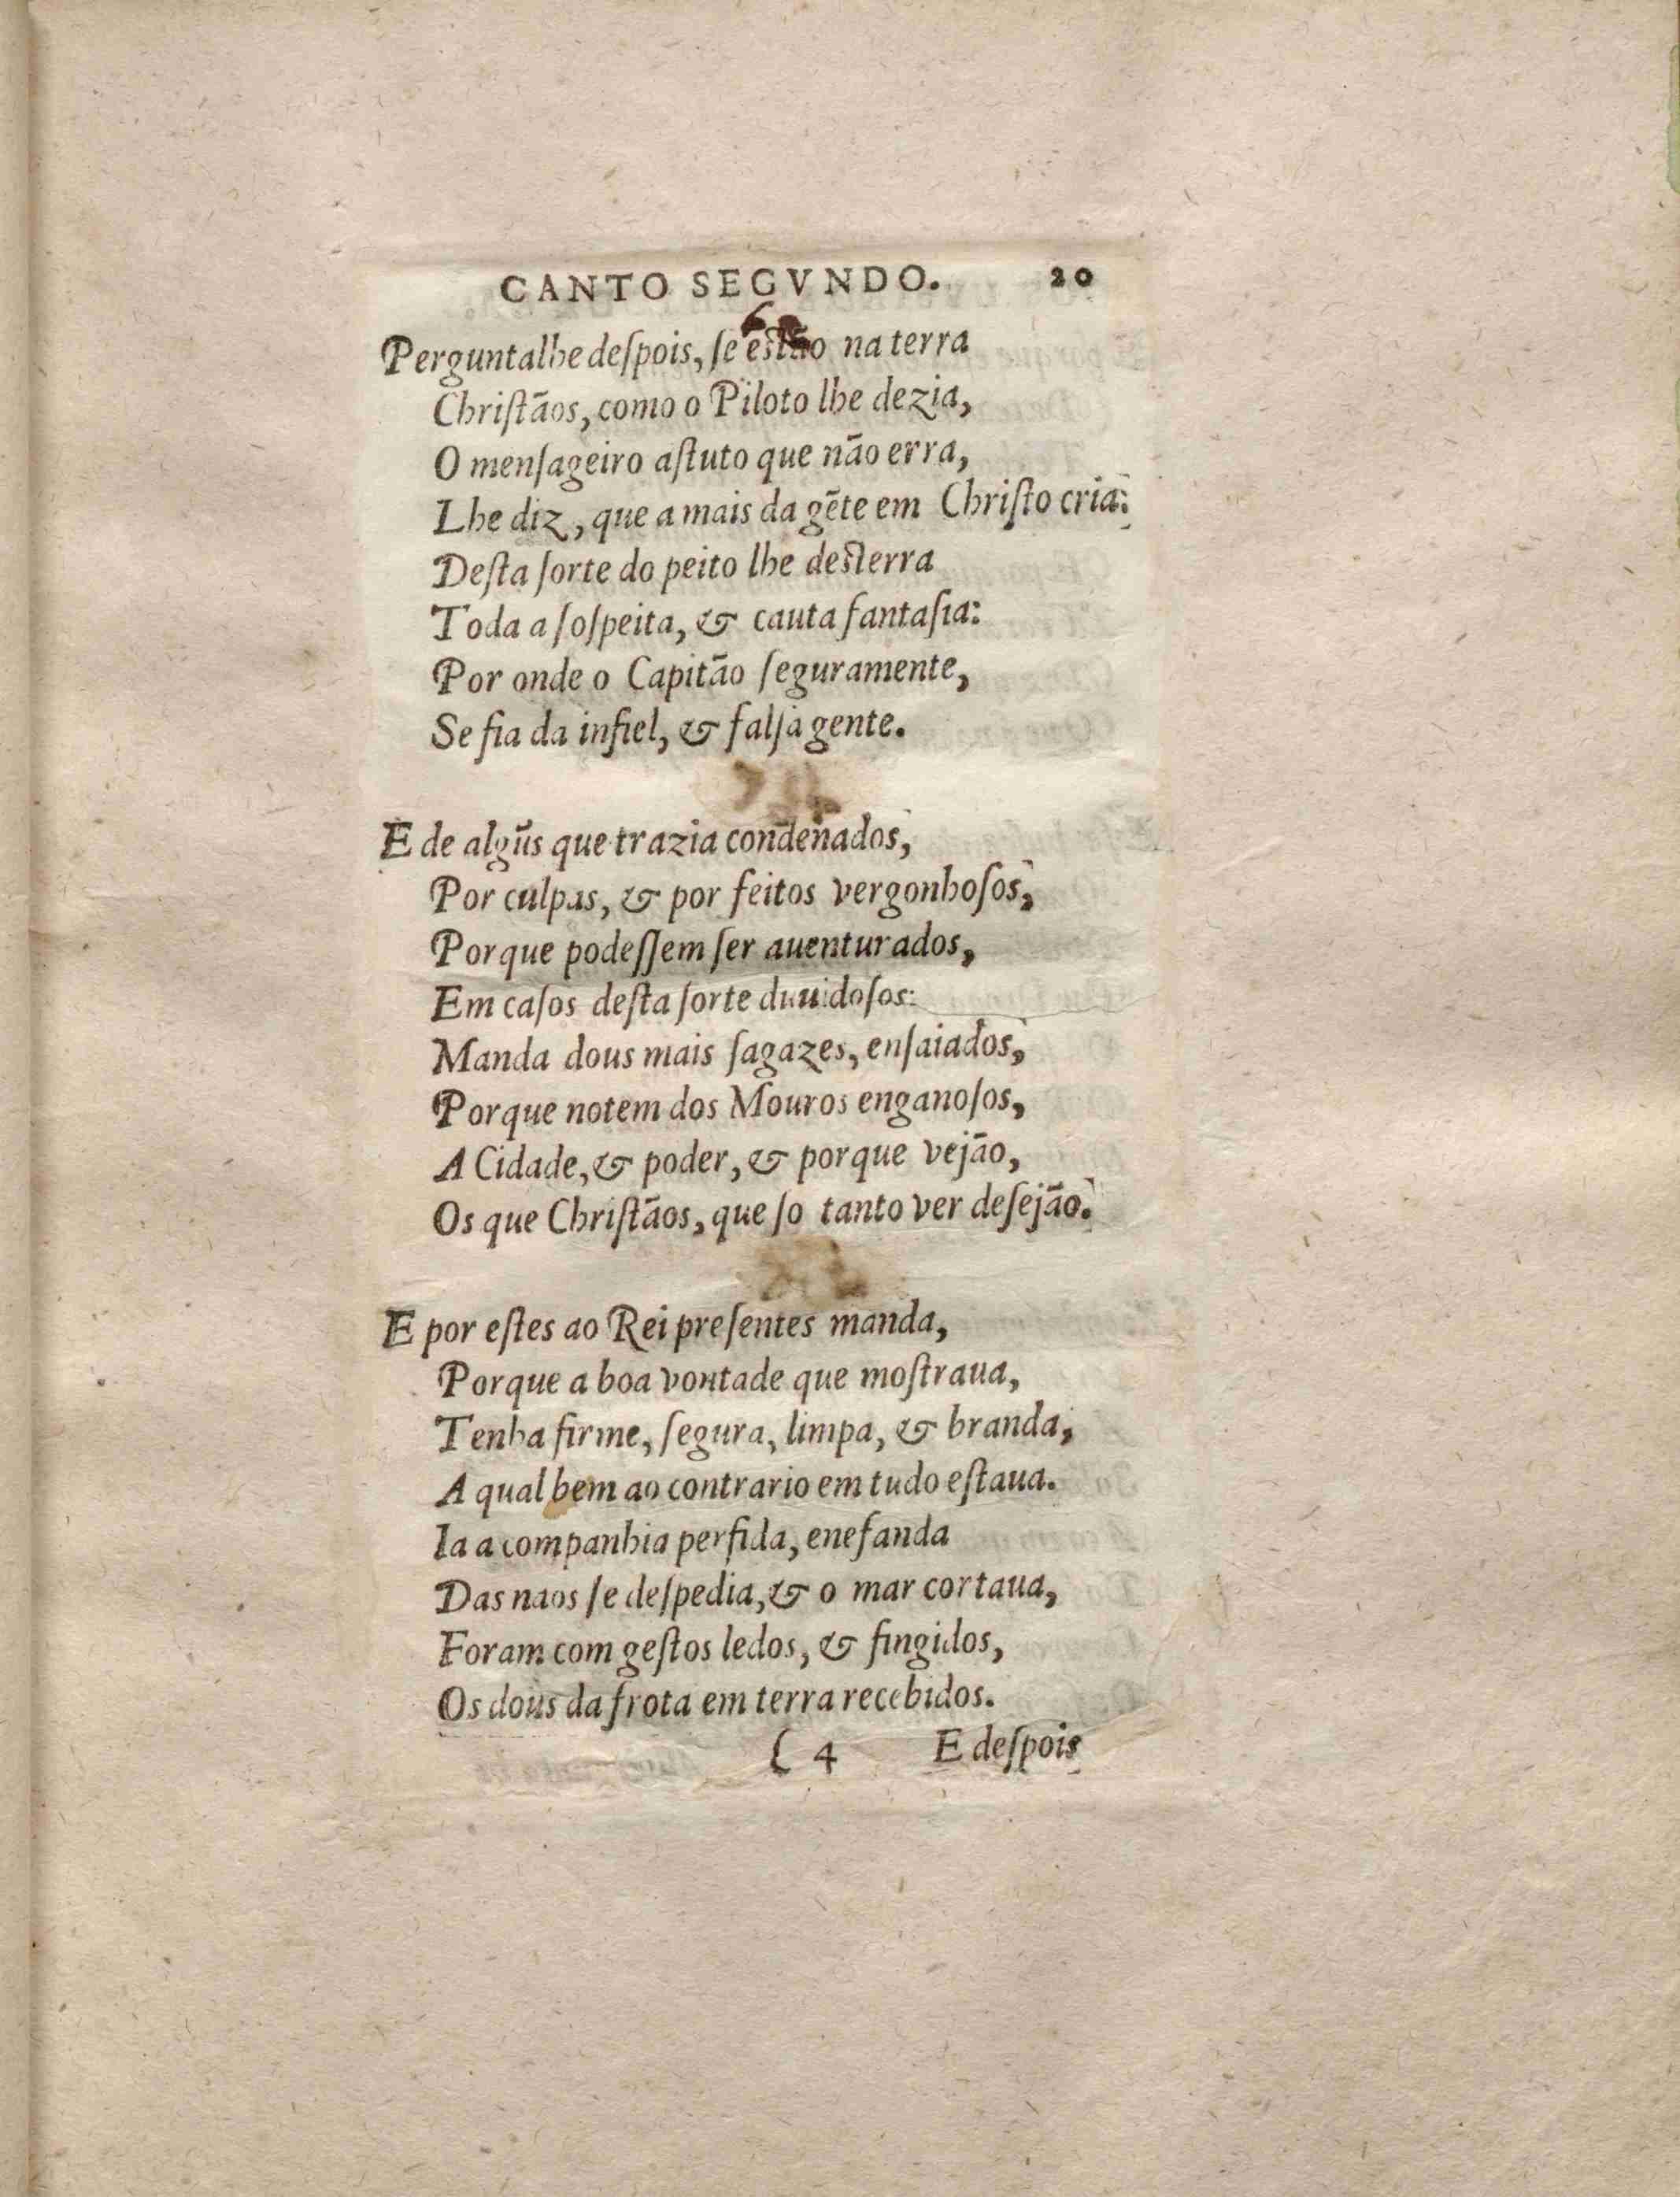 CANTO SEGVNDO. 20
Perguntalhe deſpois, ſe estão na terra
Chriſtãos, como o Piloto lhe dezia,
O menſageiro aſtuto que não erra,
Lhe diz, que a mais da gẽte em Chriſto cria:
Deſta ſorte do peito lhe desterra
Toda a ſoſpeita, & cauta fantaſia:
Por onde o Capitão ſeguramente,
Se fia da infiel, & falſa gente.
E de algũs que trazia condenados,
Por culpas, & por feitos vergonhoſos,
Porque podeſſem ſer auenturados,
Em caſos deſta ſorte duuidoſos:
Manda dous mais ſagazes, enſaiados,
Porque notem dos Mouros enganoſos,
A Cidade, & poder, & porque vejão,
Os que Chriſtãos, que ſo tanto ver deſejão.
E por eſtes ao Rei preſentes manda,
Porque a boa vontade que moſtraua,
Tenha firme, ſegura, limpa, & branda,
A qual bem ao contrario em tudo eſtaua.
Ia a companhia perfida, enefanda
Das naos ſe deſpedia, & o mar cortaua,
Foram com geſtos ledos, & fingidos,
Os dous da frota em terra recebidos.
C 4 E deſpois